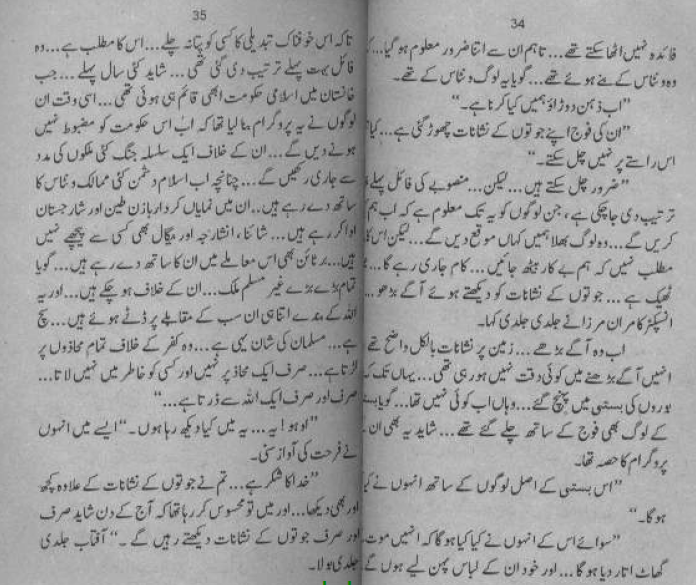 34
فائدہ نہیں اٹھا سکتے تھے... تاہم ان سے اتنا ضرور معلوم ہو گیا...
وہ وٹناس کے بنے ہوئے تھے... گویا یہ لوگ وٹناس کے تھے۔
"اب ذہن دوڑاؤ ہمیں کیا کرنا ہے۔"
"ان کی فوج اپنے جوتوں کے نشانات چھوڑ گئی ہے... کیا
اس راستے پر نہیں چل سکتے۔"
"ضرور چل سکتے ہیں... لیکن... منصوبے کی فائل پہلے
ترتیب دی جا چکی ہے، جن لوگوں کو یہ تک معلوم ہے کہ اب ہم
کریں گے... وہ لوگ بھلا ہمیں کہاں موقع دیں گے... لیکن اس کا
مطلب نہیں کہ ہم بے کار بیٹھ جائیں... کام جاری رہے گا...
ٹھیک ہے... جوتوں کے نشانات کو دیکھتے ہوئے آگے بڑھو...
انسپکٹر کامران مرزا نے جلدی جلدی کہا۔
اب وہ آگے بڑھے... زمین پر نشانات بالکل واضح تھے
انہیں آگے بڑھنے میں کوئی دقت نہیں ہو رہی تھی... یہاں تک کہ
بوروں کی بستی میں پہنچ گئے... وہاں اب کوئی نہیں تھا... گویا بستی
کے لوگ بھی فوج کے ساتھ چلے گئے تھے... شاید یہ بھی ان
پروگرام کا حصہ تھا۔
"اس بستی کے اصل لوگوں کے ساتھ انہوں نے کیا
ہو گا۔"
"سوائے اس کے انہوں نے کیا کیا ہو گا کہ انہیں موت
گھاٹ اتار دیا ہو گا... اور خود ان کے لباس پہن لیے ہوں گے
35
تاکہ اس خوفناک تبدیلی کا کسی کو پتا نہ چلے... اس کا مطلب ہے... وہ
فائل بہت پہلے ترتیب دی گئی تھی... شاید کئی سال پہلے... جب
غانستان میں اسلامی حکومت ابھی قائم ہی ہوئی تھی... اسی وقت ان
لوگوں نے یہ پروگرام بنا لیا تھا کہ اب اس حکومت کو مضبوط نہیں
ہونے دیں گے... ان کے خلاف ایک سلسلہ جنگ کئی ملکوں کی مدد
سے جاری رکھیں گے... چنانچہ اب اسلام دشمن کئی ممالک وٹناس کا
ساتھ دے رہے ہیں.. ان میں نمایاں کردار بازن طین اور شارجستان
ادا کر رہے ہیں... شائنا، انشارجہ اور بیگال بھی کسی سے پیچھے نہیں
ہیں... برٹائن بھی اس معاملے میں ان کا ساتھ دے رہے ہیں... گویا
تمام بڑے بڑے غیر مسلم ملک... ان کے خلاف ہو چکے ہیں... اور یہ
اللہ کے بندے اتنا ہی ان سب کے مقابلے پر ڈٹے ہوئے ہیں... سچ
ہے... مسلمان کی شان یہی ہے... وہ کفر کے خلاف تمام محاذوں پر
لڑتا ہے... صرف ایک محاذ پر نہیں اور کسی کو خاطر میں نہیں لاتا...
صرف اور صرف ایک اللہ سے ڈرتا ہے..."
"اوہو! یہ... یہ میں کیا دیکھ رہا ہوں۔" ایسے میں انہوں
نے فرحت کی آواز سنی۔
"خدا کا شکر ہے... تم نے جوتوں کے نشانات کے علاوہ کچھ
اور بھی دیکھا... اور میں تو محسوس کر رہا تھا کہ آج کے دن شاید صرف
اور صرف جوتوں کے نشانات دیکھتے رہیں گے۔" آفتاب جلدی
جلدی بولا۔